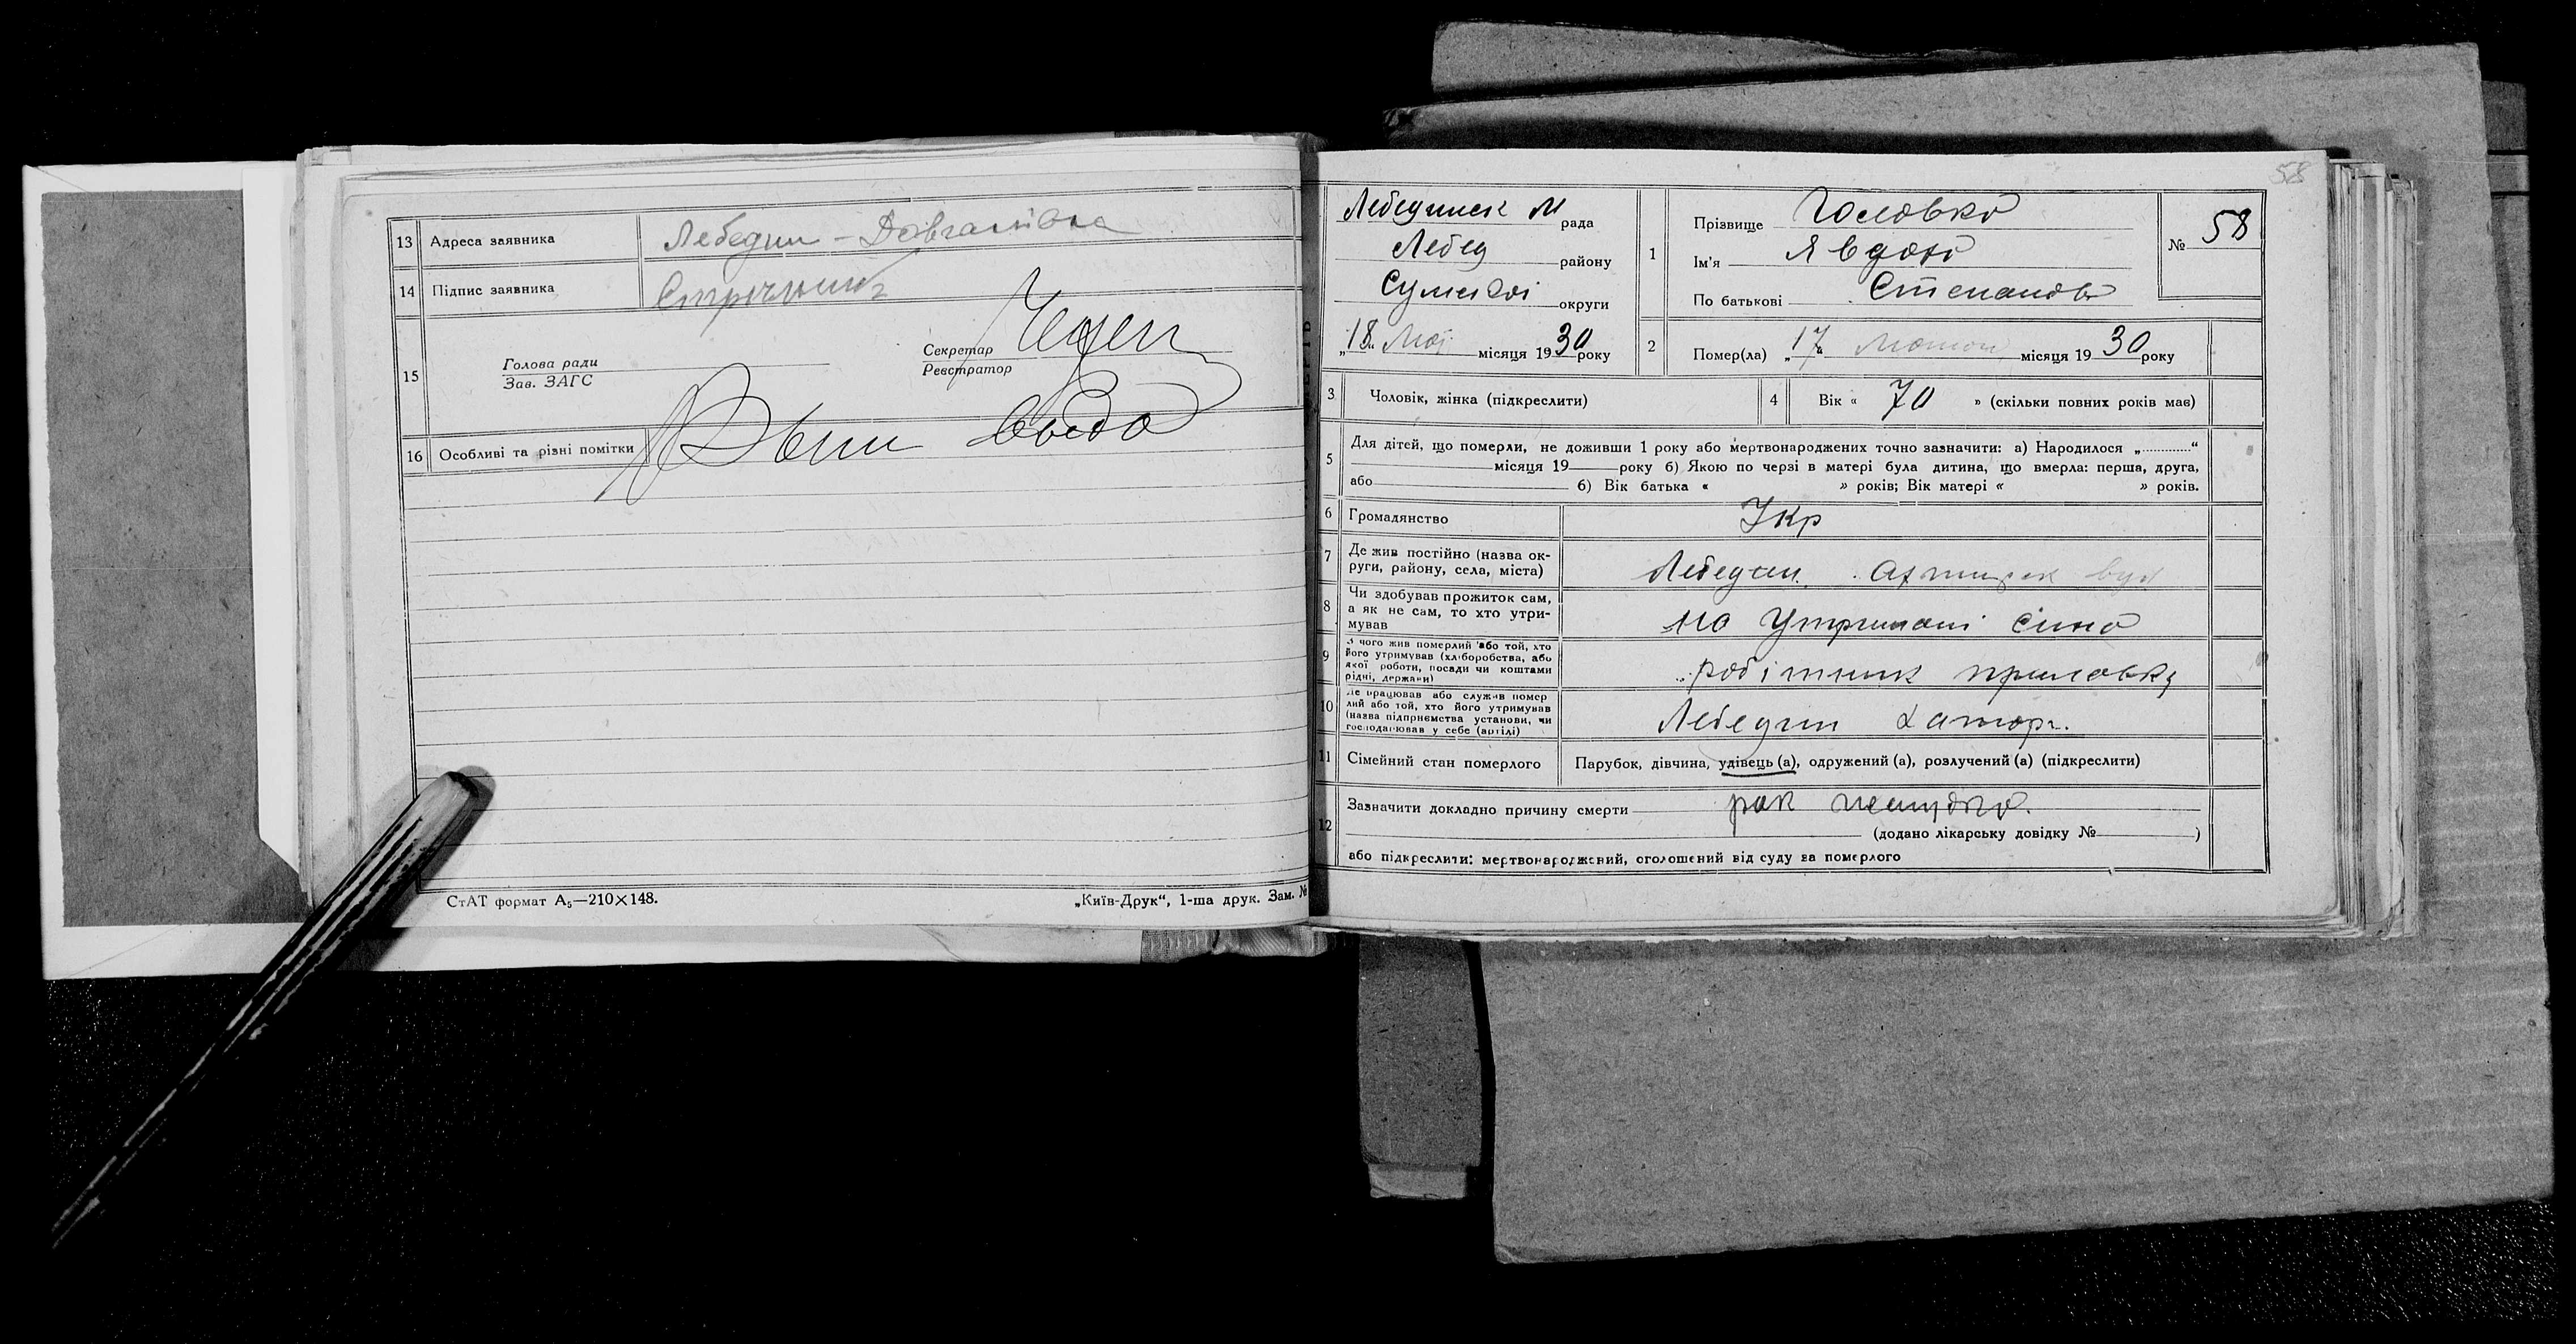 13 Адреса заявника Лебедин - Довганівка
14 Підпис заявника
15 Голова ради
Зав. ЗАГС
Секретар
Реєстратор
16 Особливі та різні помітки
СтАТ формат А5—210×148.
„Київ-Друк“, 1-ша друк. Зам. №
58
Лебединськ М рада
Лебед району
Сумської округи
„18“ місяця 1930 року
1 Прізвище Головко
Ім'я Явдоха
По батькові Степанов
№ 58
2 Помер(ла) „17“ місяця 1930 року
3 Чоловік, жінка (підкреслити)
4 Вік « 70 » (скільки повних років має)
5 Для дітей, що померли, не доживши 1 року або мертвонароджених точно зазначити: а) Народилося „..........“
місяця 19 року б) Якою по черзі в матері була дитина, що вмерла: перша, друга,
або б) Вік батька « » років; Вік матері « » років.
6 Громадянство Укр
7 Де жив постійно (назва ок-
руги, району, села, міста) Лебедин. Охтирск вул
8 Чи здобував прожиток сам,
а як не сам, то хто утри-
мував на утримані сина
9 З чого жив померлий або той, хто
його утримував (хліборобства, або
якої роботи, посади чи коштами
рідні, держави) робітник
10 Де працював або служив помер
лий або той, хто його утримував
(назва підприємства установи, чи
господарював у себе (артілі) Лебедин
11 Сімейний стан померлого Парубок, дівчина, удівець (а), одружений (а), розлучений (а) (підкреслити)
12 Зазначити докладно причину смерти рак
(додано лікарську довідку № )
або підкреслити: мертвонароджений, оголошений від суду за померлого